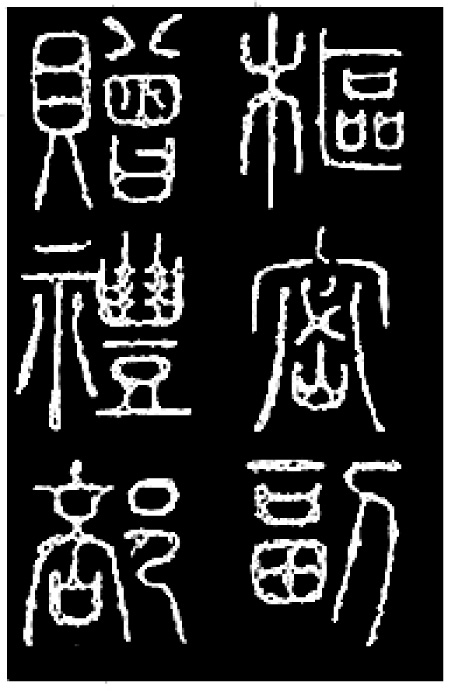 樞密副
贈禮部